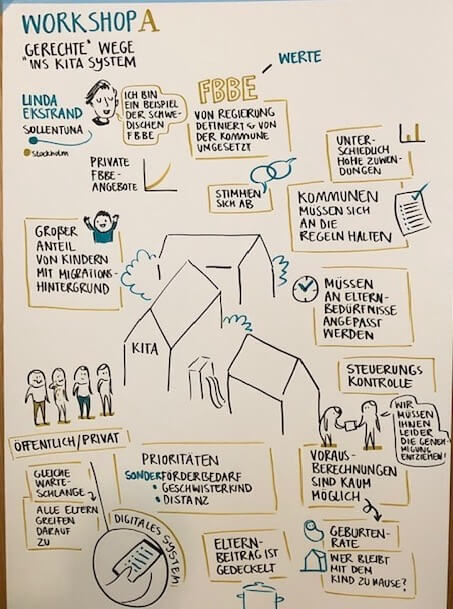 WORKSHOP A
"GERECHTE" WEGE
INS KITA SYSTEM
LINDA
EKSTRAND
SOLLENTUNA
Stockholm
ICH BIN
EIN BEISPIEL
DER SCHWE-
DISCHEN
FBBE
FBBE
WERTE
VON REGIERUNG
DEFINIERT & VON
DER KOMMUNE
UMGESETZT
PRIVATE
FBBE-
ANGEBOTE
STIMMEN
SICH AB
UNTER-
SCHIEDLICH
HOHE ZUWEN-
DUNGEN
KOMMUNEN
MÜSSEN SICH
AN DIE
REGELN HALTEN
GROßER
ANTEIL
VON KINDERN
MIT MIGRATIONS-
HINTERGRUND
MÜSSEN
AN ELTERN-
BEDÜRFNISSE
ANGEPASST
WERDEN
KITA
STEUERUNGS
KONTROLLE
WIR
MÜSSEN
IHNEN
LEIDER
DIE GENEH-
MIGUNG
ENTZIEHEN!
ÖFFENTLICH/PRIVAT
GLEICHE
WARTE-
SCHLANGE
ALLE ELTERN
GREIFEN
DARAUF
ZU
DIGITALES SYSTEM
PRIORITÄTEN
SONDERFÖRDERBEDARF
• GESCHWISTERKIND
• DISTANZ
VORAUS-
BERECHNUNGEN
SIND KAUM
MÖGLICH
ELTERN-
BEITRAG IST
GEDECKELT
GEBURTEN-
RATE
WER BLEIBT
MIT DEM
KIND ZU HAUSE?